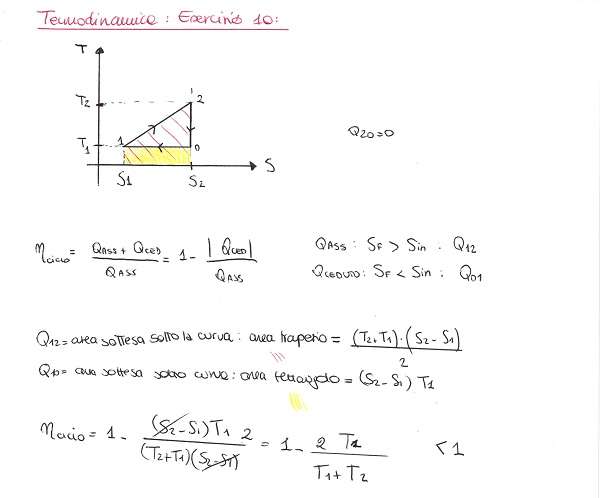 Termodinamica: Esercizio 10:
T
T2
2
Q20=0
T1
1
0
S1
S2
S
ηciclo = QASS + QCED / QASS = 1 - |QCED| / QASS
QASS: SF > Sin : Q12
QCEDUTO: SF < Sin : Q01
Q12 = area sottesa sotto la curva: area trapezio = (T2+T1)·(S2-S1) / 2
Q10 = area sottesa sotto curva: area rettangolo = (S2-S1) T1
ηciclo = 1 - (S2-S1) T1 2 / (T2+T1)(S2-S1) = 1 - 2 T1 / T1+T2 < 1